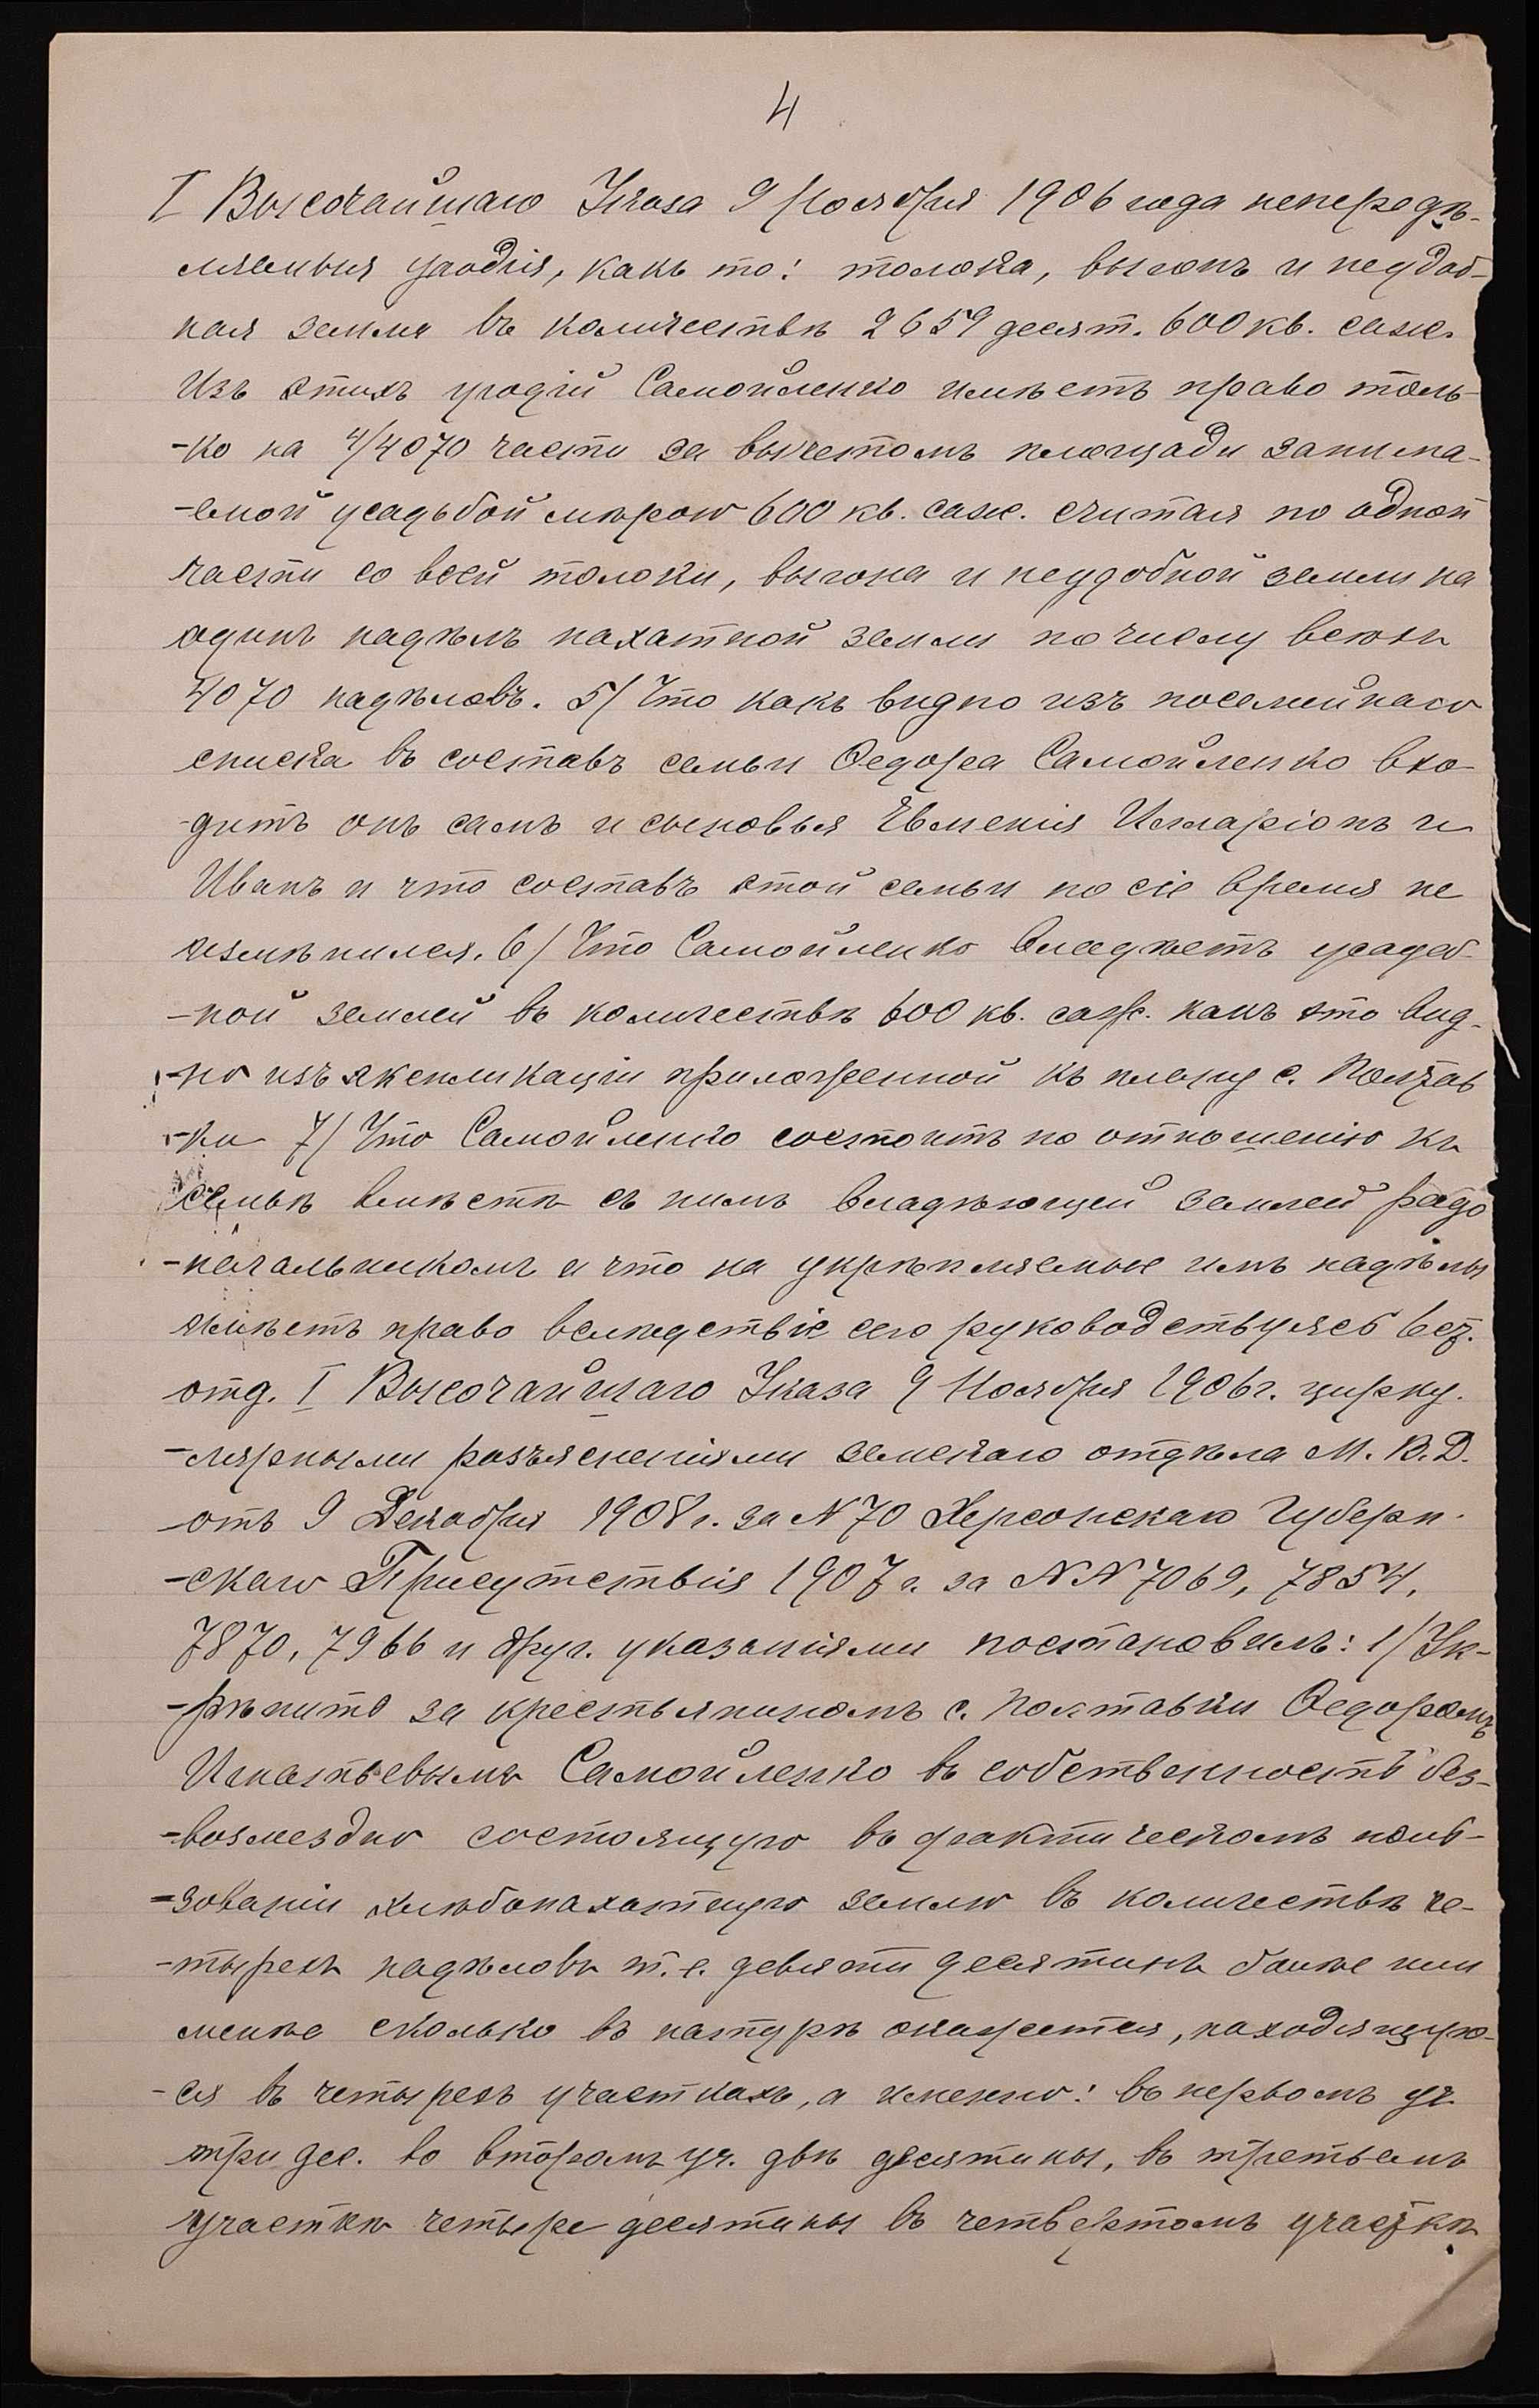 4
I Высочайшаго Указа 9 Ноября 1906 года непередѣ-
ляемыя угодія, какъ то: толока, выгонъ и неудоб-
ная земля въ количествѣ 2659 десят. 600 кв. саж.
Изъ этихъ угодій Самойленко имѣетъ право толь-
-ко на 4/4070 части за вычетомъ площади занима-
-емой усадьбой мѣрою 600 кв. саж. считая по одной
части со всей толоки, выгона и неудобной земли на
одинъ надѣлъ пахатной земли по числу всѣхъ
4070 надѣловъ. 5/ Что какъ видно изъ посемейнаго
списка въ составъ семьи Ѳедора Самойленко вхо-
-дитъ онъ самъ и сыновья Евменія Илларіонъ и
Иванъ и что составъ этой семьи по сіе время не
измѣнился. 6/ Что Самойленко владѣетъ усадеб-
-ной землей въ количествѣ 600 кв. саж. какъ это вид-
-но изъ экспликаціи приложенной къ плану с. Полтав
-ки 7/ Что Самойленко состоитъ по отношенію къ
семьѣ вмѣстѣ съ нимъ владѣющей землей родо
-начальникомъ и что на укрѣпляемые имъ надѣлы
имѣетъ право вслѣдствіе сего руководствуясь 6 ст.
отд. I Высочайшаго Указа 9 Ноября 1906 г. цирку-
-лярными разъясненіями земскаго отдѣла М. В. Д.
-отъ 9 Декабря 1908 г. за N 70 Херсонскаго Губерн-
-скаго Присутствія 1907 г. за NN 7069, 7854,
7870, 7966 и друг. указаніями постановилъ: 1/ Ук-
-рѣпить за крестьяниномъ с. Полтавки Ѳедоромъ
Игнатьевымъ Самойленко въ собственность без-
-возмездно состоящую въ фактическомъ поль-
-зованіи хлѣбопахатную землю въ количествѣ че-
-тырехъ надѣловъ т. е. девяти десятинъ болѣе или
менѣе сколько въ натурѣ окажется, находящую-
-ся въ четырехъ участкахъ, а именно: въ первомъ уч.
три дес. во второмъ уч. двѣ десятины, въ третьемъ
участкѣ четыре десятины въ четвертомъ участкѣ